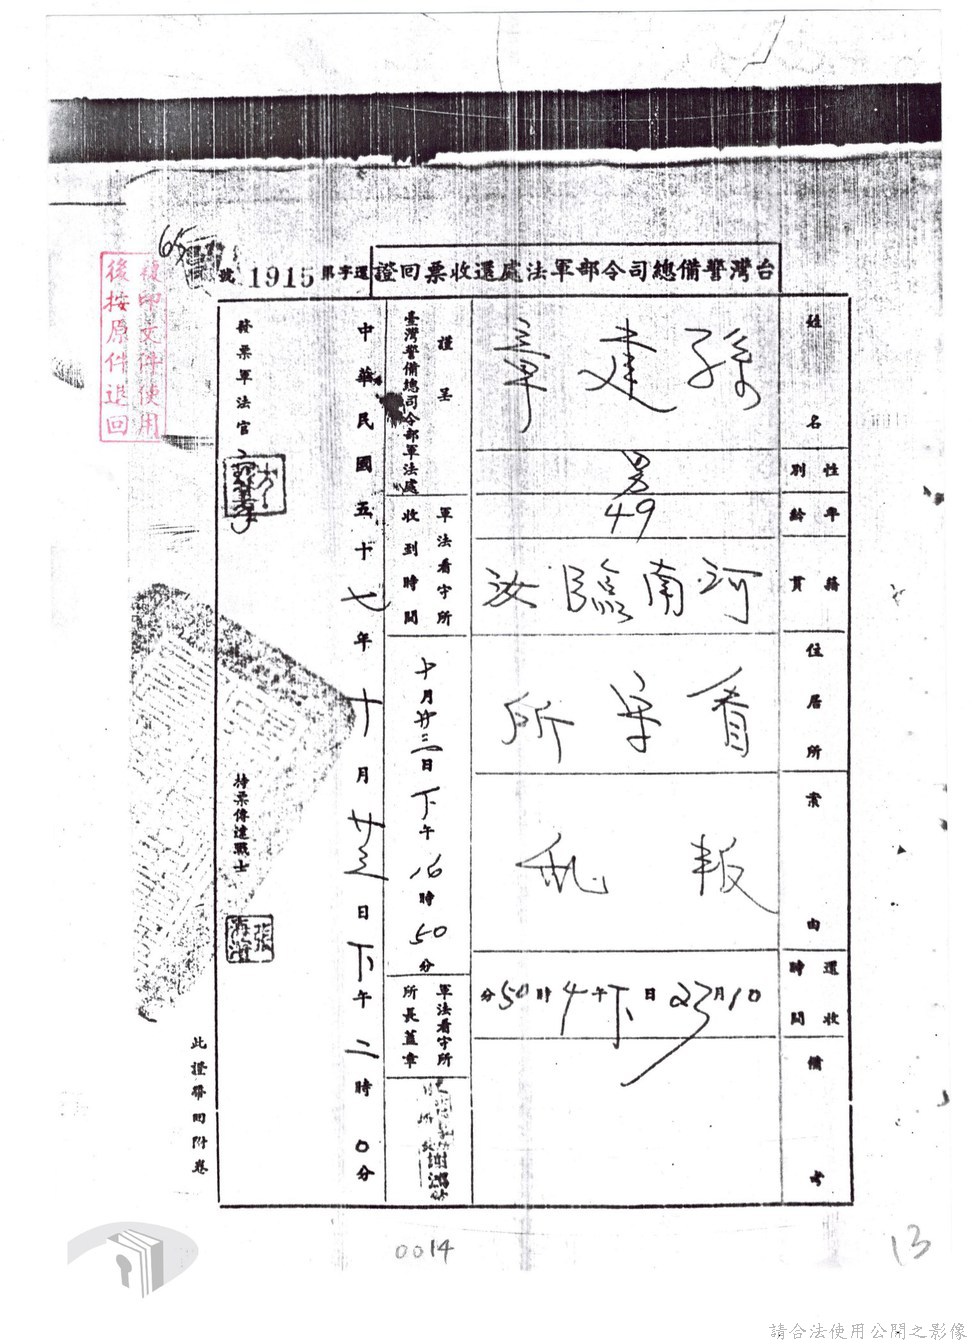 65
台灣警備總司令部軍法處還收票回證
還字第1915號
複印文件使用
後按原件退回
姓名
孫建章
性別
男
年齡
49
籍貫
河南臨汝
住居所
看守所
案由
叛亂
還收時間
10月23日下午4時50分
備考
謹呈
臺灣警備總司令部軍法處
軍法看守所收到時間
十月廿三日下午16時50分
軍法看守所所長蓋章
中華民國五十七年十月廿三日下午二時0分
發票軍法官
持票傳達戰士
此證帶回附卷
0014
13
請合法使用公開之影像